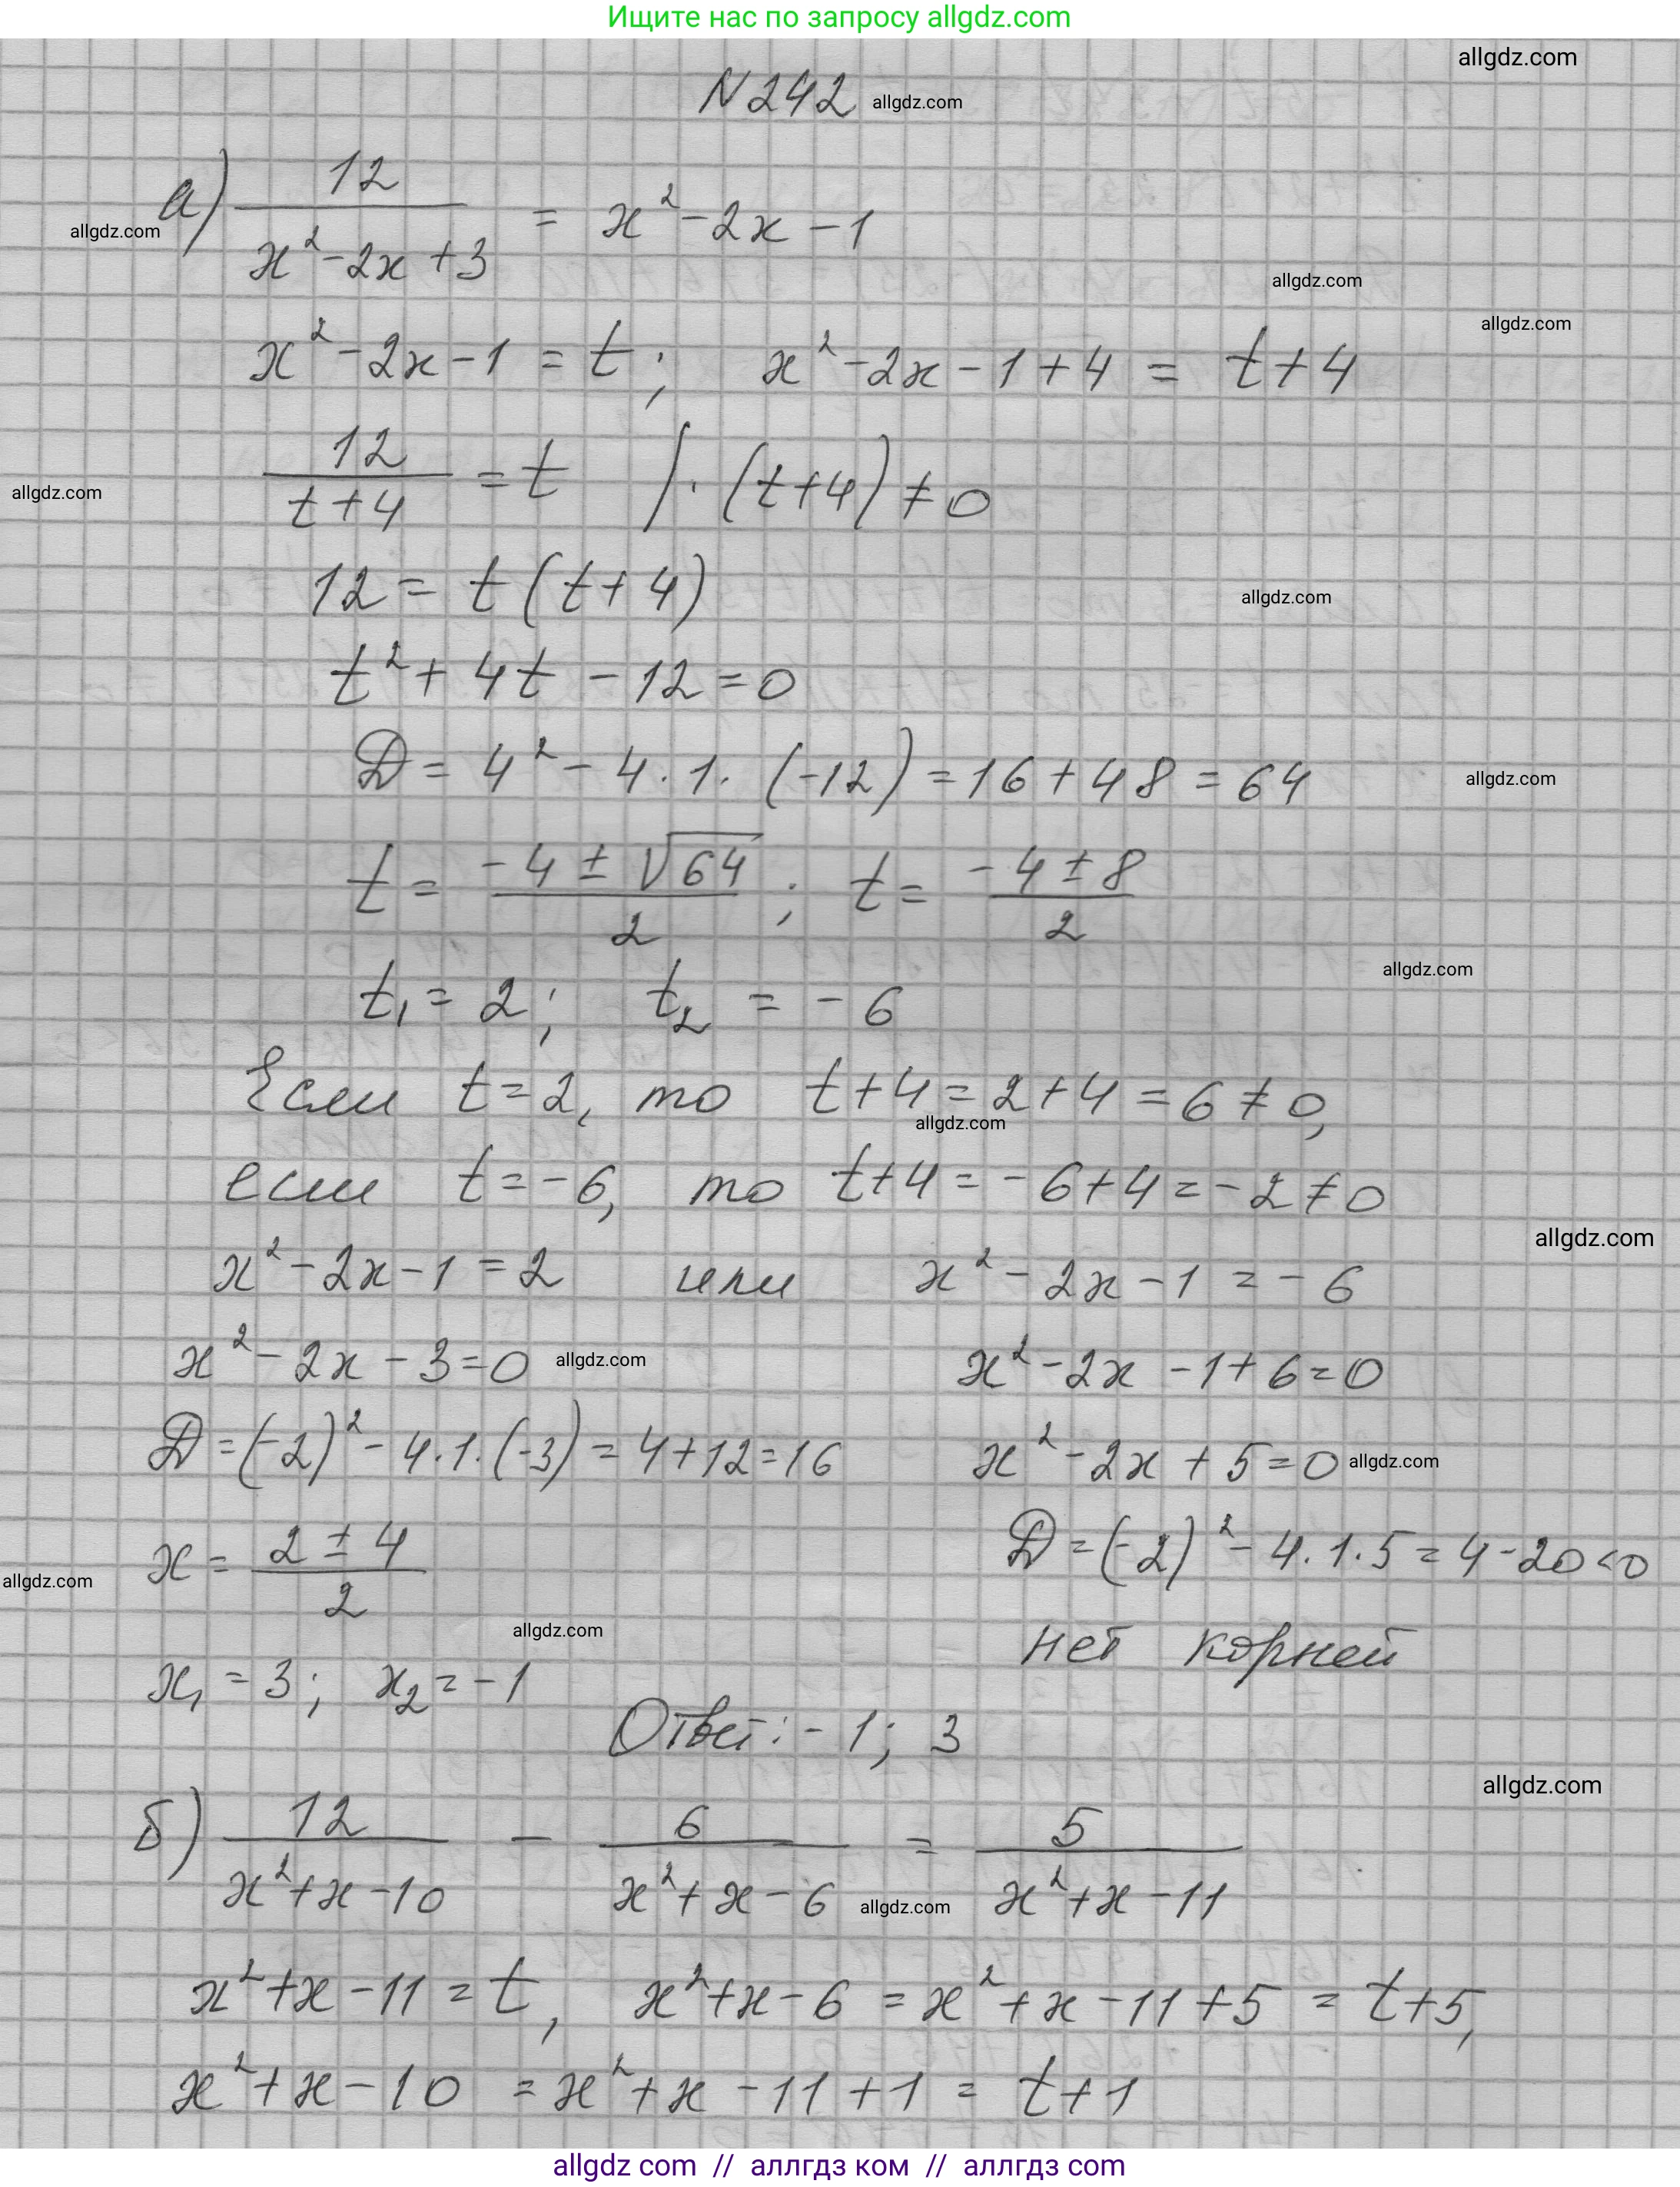 Ищите нас по запросу allgdz.com
allgdz.com
N 242 allgdz.com
а) 12 / (x² - 2x + 3) = x² - 2x - 1
allgdz.com
allgdz.com
allgdz.com
x² - 2x - 1 = t; x² - 2x - 1 + 4 = t + 4
12 / (t + 4) = t | · (t + 4) ≠ 0
allgdz.com
12 = t (t + 4)
allgdz.com
t² + 4t - 12 = 0
D = 4² - 4 · 1 · (-12) = 16 + 48 = 64
allgdz.com
t = (-4 ± √64) / 2; t = (-4 ± 8) / 2
allgdz.com
t₁ = 2; t₂ = -6
Если t = 2, то t + 4 = 2 + 4 = 6 ≠ 0,
allgdz.com
если t = -6, то t + 4 = -6 + 4 = -2 ≠ 0
allgdz.com
x² - 2x - 1 = 2 или x² - 2x - 1 = -6
x² - 2x - 3 = 0 allgdz.com x² - 2x - 1 + 6 = 0
D = (-2)² - 4 · 1 · (-3) = 4 + 12 = 16 x² - 2x + 5 = 0 allgdz.com
x = (2 ± 4) / 2 D = (-2)² - 4 · 1 · 5 = 4 - 20 < 0
allgdz.com
allgdz.com
нет корней
x₁ = 3; x₂ = -1
Ответ: -1; 3
allgdz.com
б) 12 / (x² + x - 10) - 6 / (x² + x - 6) = 5 / (x² + x - 11)
allgdz.com
x² + x - 11 = t, x² + x - 6 = x² + x - 11 + 5 = t + 5,
x² + x - 10 = x² + x - 11 + 1 = t + 1
allgdz com // аллгдз ком // аллгдз com